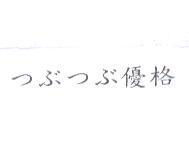 つぶつぶ優格